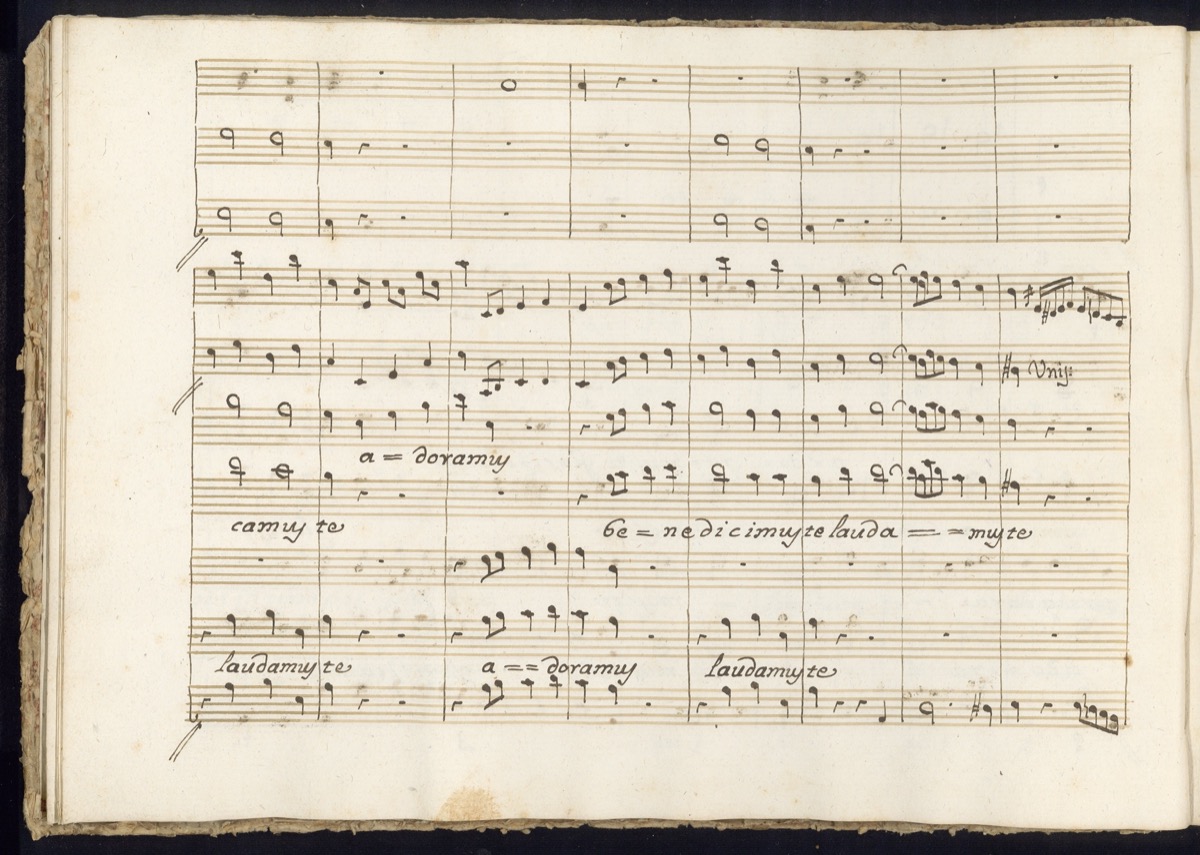 Unis:
a = doramus
camus te
be = ne dicimus te lauda == = mus te
laudamus te
a == doramus laudamus te